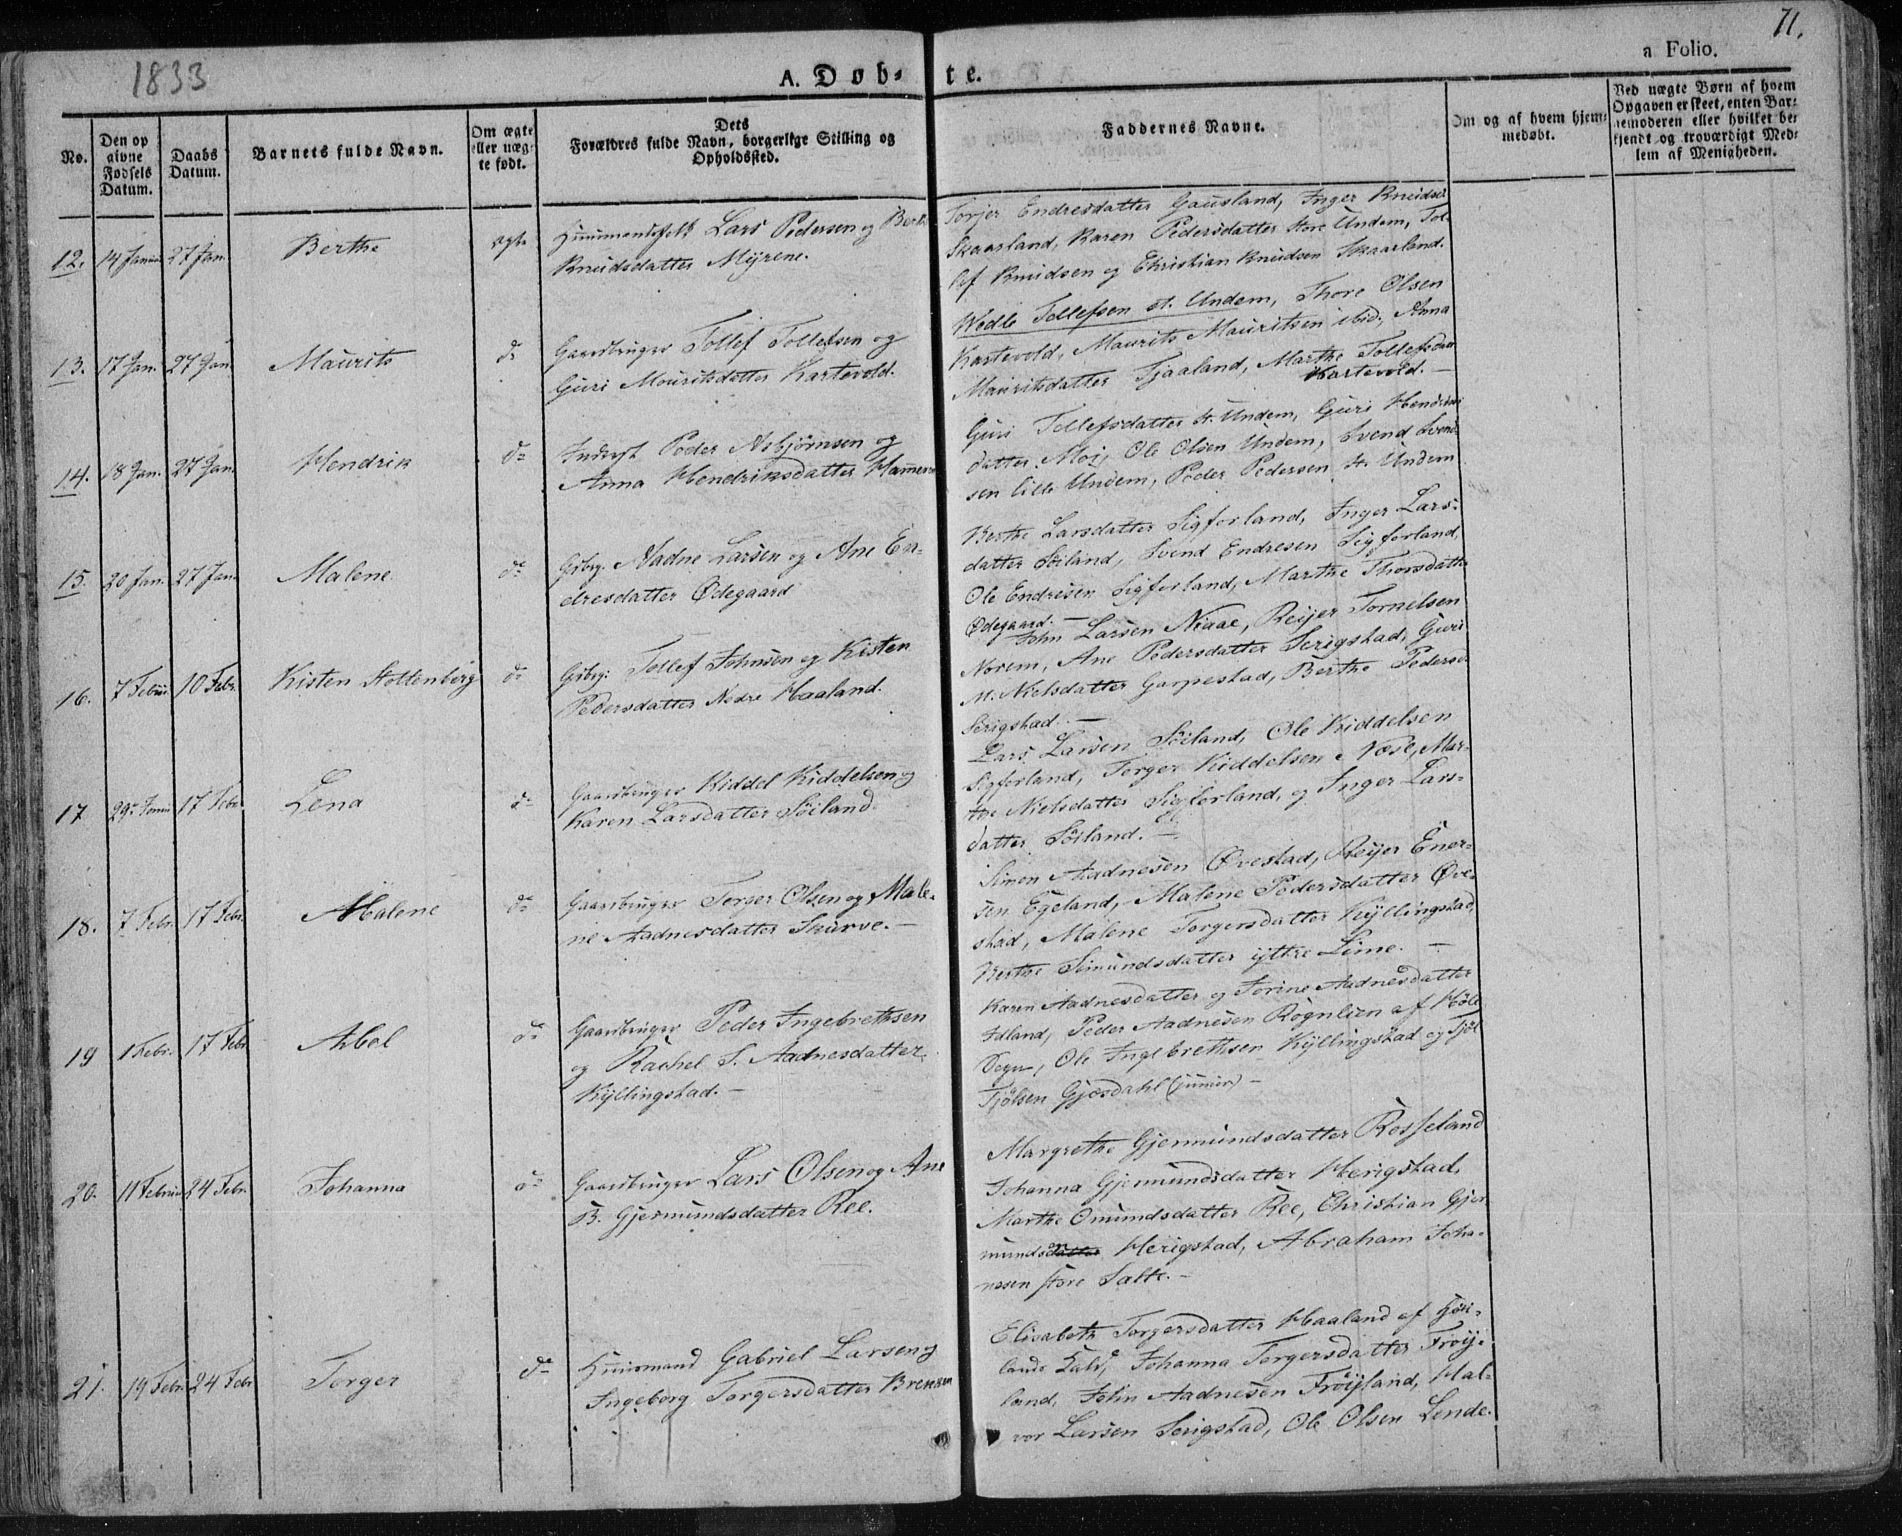 1833
71.
A. Døb-
te.
a Folio.
No.
Den op
givne
Fødsels
Datum.
Daabs
Datum.
Barnets fulde Navn.
Om ægte
eller uæg-
te født.
Dets
Forældres fulde Navn, borgerlige Stilling og
Opholdssted.
Faddernes Navne.
Om og af hvem hjem-
medøbt.
Ved uægte Børn af hvem
Opgaven er skeet, enten Bar-
nemoderen eller hvilket be-
kjendt og troværdigt Med-
lem af Menigheden.
12. 14 Januar 27 Jan. Berthe ægte
Huusmandsfolk Lars Pedersen og Berthe
Knudsdatter Myrene.
Torjer Endresdatter Gausland, Inger Knudsd
Skaarland, Karen Pedersdatter store Undem, Tol-
lef Knudsen og Christian Knudsen Skaarland.
13. 17 Jan. 27 Jan. Maurits do
Gaardbruger Tollef Tollefsen og
Guri Mouritsdatter Kartevold.
Wedle Tollefsen st. Undem, Thore Olsen
Kartevold, Maurits Mauritsen ibid, Anna
Mauritsdatter Tjaaland, Marthe Tollefsdatter
Kartevold. —
14. 18 Jan. 27 Jan. Hendrik do
Inderst Peder Asbjörnsen og
Anna Hendriksdatter Hammeren
Guri Tollefsdatter st. Undem, Guri Hendriks
datter Moi, Ole Olsen Undem, Svend Svend-
sen lille Undem, Peder Pedersen st. Undem
15. 20 Jan. 27 Jan. Malene do
Grbrg. Aadne Larsen og Ane En-
dresdatter Ødegaard
Berthe Larsdatter Sigferland, Inger Lars-
datter Söiland, Svend Endresen Sigferland,
Ole Endresen Sigferland, Marthe Thorsdatter
Ødegaard. —
16. 7 Februar 10 Febr. Kisten Stoltenberg do
Grbrg. Tollef Johnsen og Kisten
Pedersdatter Nedre Haaland.
John Larsen Niaae, Reijer Tornelsen
Norem, Ane Pedersdatter Serigstad, Guri
M. Nielsdatter Garpestad, Berthe Pedersd
Serigstad. —
17 29 Januar 17 Febr Lena do
Gaardbruger Kiddel Kiddelsen og
Karen Larsdatter Söiland.
Lars Larsen Söiland, Ole Kiddelsen
Sigferland, Torger Kiddelsen Næse, Mar-
the Nielsdatter Sigferland, og Inger Lars-
datter Söiland. —
18. 7 Febr. 17 Febr. Malene do
Gaardbruger Torger Olsen og Male-
ne Aadnesdatter Skurve. —
Simon Aadnesen Øvestad, Reijer Ener-
sen Egeland, Malene Pedersdatter Øve-
stad, Malene Torgersdatter Kyllingstad,
Berthe Simundsdatter yttre Lime. —
19 1 Febr. 17 Febr Abel do
Gaardbruger Peder Ingebrethsen
og Rachel S. Aadnesdatter
Kyllingstad. —
Karen Aadnesdatter og Torine Aadnesdatter
Idland, Peder Aadnesen Rögnlien af Höle
Sogn, Ole Ingebrethsen Kyllingstad og Tjöl
Tjölsen Gjesdahl (junior) —
20. 11 Februar 24 Febr. Johanna do
Gaardbruger Lars Olsen og Ane
B. Gjermundsdatter Ree.
Margrethe Gjermundsdatter Rosseland
Johanna Gjermundsdatter Herigstad,
Marthe Omundsdatter Ree, Christian Gjer-
mundsen Herigstad, Abraham Joha-
nesen store Salte. —
21. 19 Febr 24 Febr Torger do
Huusmand Gabriel Larsen og
Ingeborg Torgersdatter Brekken
Elisabeth Torgersdatter Haaland af Höi-
lands Kald, Johanna Torgersdatter Fröy-
land, John Aadnesen Fröyland, Hal-
vor Larsen Serigstad, Ole Olsen Lende.